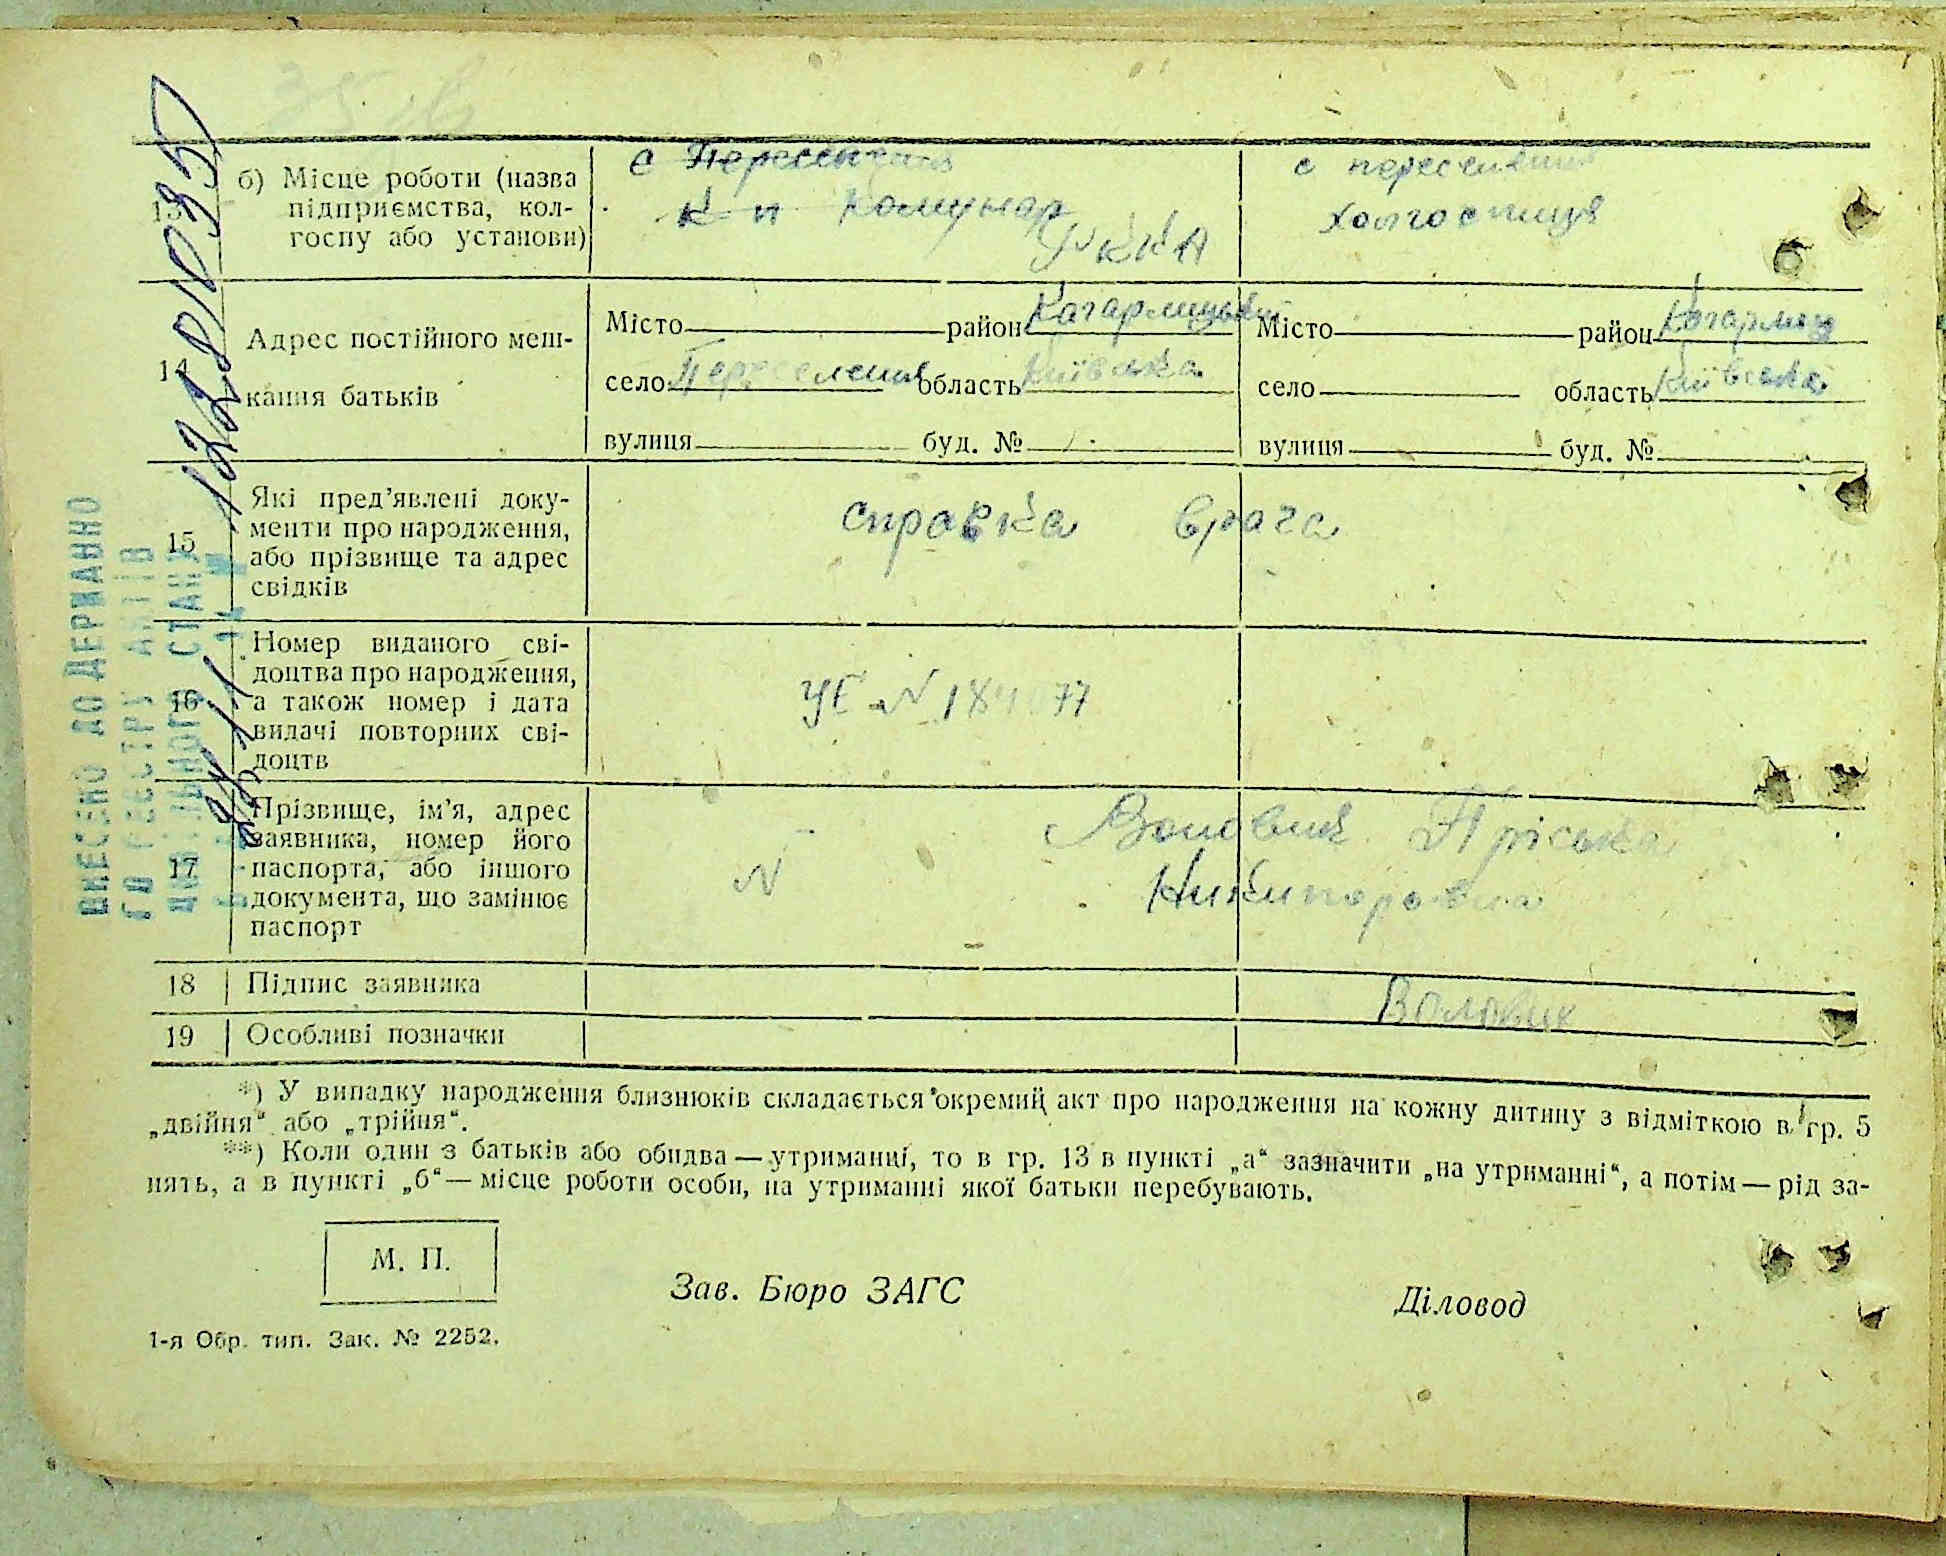 13 б) Місце роботи (назва
підприємства, кол-
госпу або установи)
с
к п комунар
РККА
с
Адрес постійного меш-
кання батьків
Місто район Кагарлицький
село Переселення область Київська
вулиця буд. №
Місто район Кагарлиц
село область Київська
вулиця буд. №
15 Які пред’явлені доку-
менти про народження,
або прізвище та адрес
свідків
справка врача
16 Номер виданого сві-
доцтва про народження,
а також номер і дата
видачі повторних сві-
доцтв
УЕ N
17 Прізвище, ім’я, адрес
заявника, номер його
паспорта, або іншого
документа, що замінює
паспорт
N
Воловик Пріська
Никипоровна
18 Підпис заявника
Воловик
19 Особливі позначки
*) У випадку народження близнюків складається окремий акт про народження на кожну дитину з відміткою в гр. 5
„двійня“ або „трійня“.
**) Коли один з батьків або обидва — утриманці, то в гр. 13 в пункті „а“ зазначити „на утриманні“, а потім — рід за-
нять, а в пункті „б“ — місце роботи особи, на утриманні якої батьки перебувають.
М. П.
Зав. Бюро ЗАГС
Діловод
1-я Обр. тип. Зак. № 2252.
ВНЕСЕНО ДО ДЕРЖАВНО
ГО РЕЄСТРУ АКТІВ
ЦИВІЛЬНОГО СТАНУ